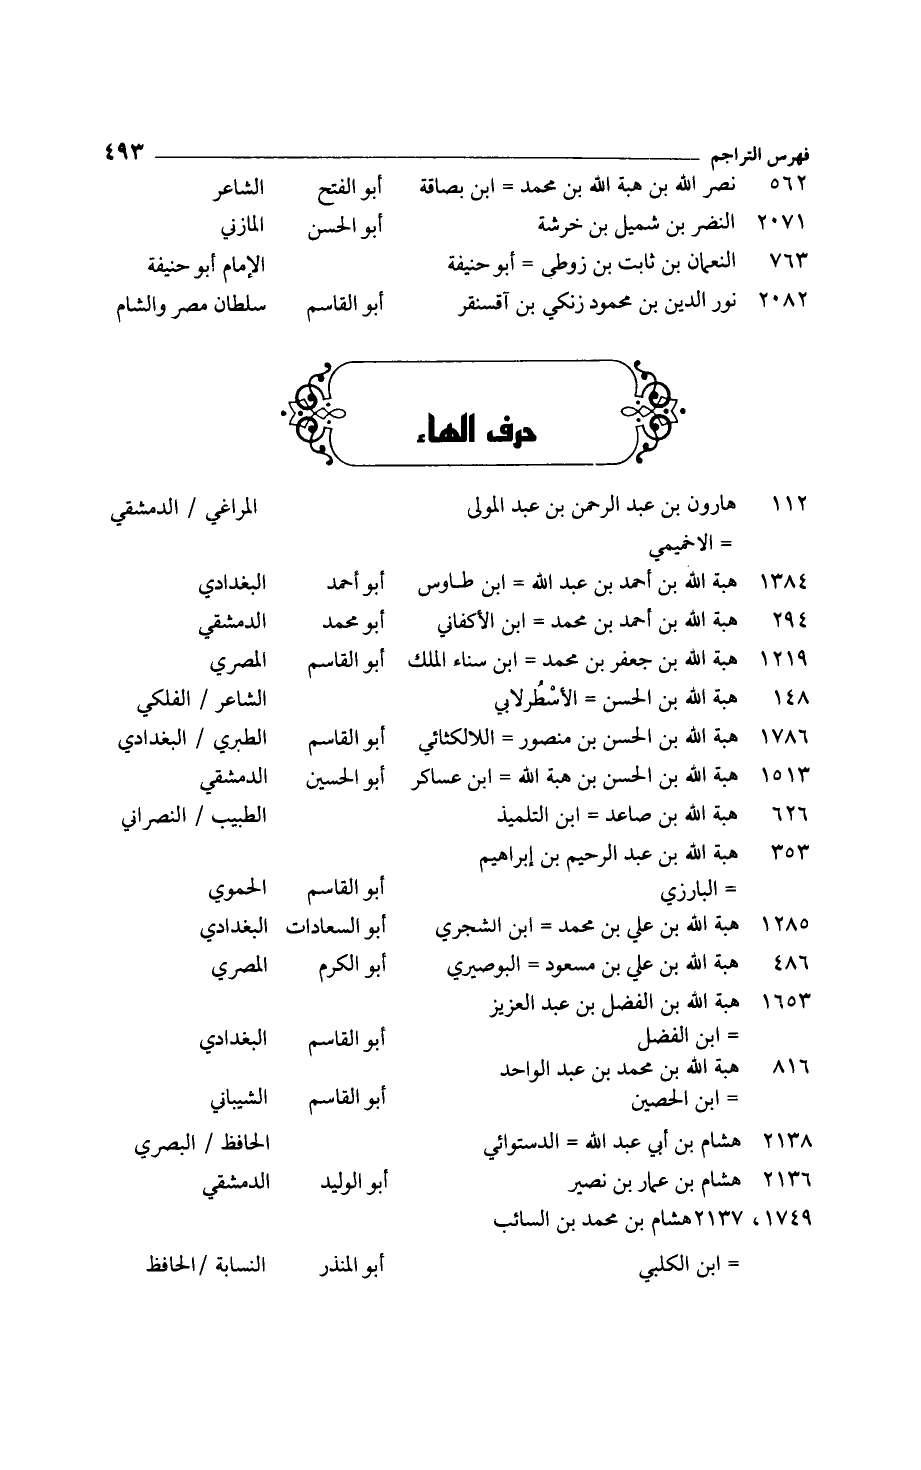 فهرس التراجم ٤٩٣
٥٦٢ نصر الله بن هبة الله بن محمد = ابن بصاقة أبو الفتح الشاعر
٢٠٧١ النضر بن شميل بن خرشة أبو الحسن المازني
٧٦٣ النعمان بن ثابت بن زوطى = أبو حنيفة الإمام أبو حنيفة
٢٠٨٢ نور الدين بن محمود زنكي بن آقسنقر أبو القاسم سلطان مصر والشام
حرف الهاء
١١٢ هارون بن عبد الرحمن بن عبد المولى المراغي / الدمشقي
= الاخميمي
١٣٨٤ هبة الله بن أحمد بن عبد الله = ابن طاوس أبو أحمد البغدادي
٢٩٤ هبة الله بن أحمد بن محمد = ابن الأكفاني أبو محمد الدمشقي
١٢١٩ هبة الله بن جعفر بن محمد = ابن سناء الملك أبو القاسم المصري
١٤٨ هبة الله بن الحسن = الأسْطُرلابي الشاعر / الفلكي
١٧٨٦ هبة الله بن الحسن بن منصور = اللالكثائي أبو القاسم الطبري / البغدادي
١٥١٣ هبة الله بن الحسن بن هبة الله = ابن عساكر أبو الحسين الدمشقي
٦٢٦ هبة الله بن صاعد = ابن التلميذ الطبيب / النصراني
٣٥٣ هبة الله بن عبد الرحيم بن إبراهيم
= البارزي أبو القاسم الحموي
١٢٨٥ هبة الله بن علي بن محمد = ابن الشجري أبو السعادات البغدادي
٤٨٦ هبة الله بن علي بن مسعود = البوصيري أبو الكرم المصري
١٦٥٣ هبة الله بن الفضل بن عبد العزيز
= ابن الفضل أبو القاسم البغدادي
٨١٦ هبة الله بن محمد بن عبد الواحد
= ابن الحصين أبو القاسم الشيباني
٢١٣٨ هشام بن أبي عبد الله = الدستوائي الحافظ / البصري
٢١٣٦ هشام بن عمار بن نصير أبو الوليد الدمشقي
١٧٤٩، ٢١٣٧ هشام بن محمد بن السائب
= ابن الكلبي أبو المنذر النسابة / الحافظ